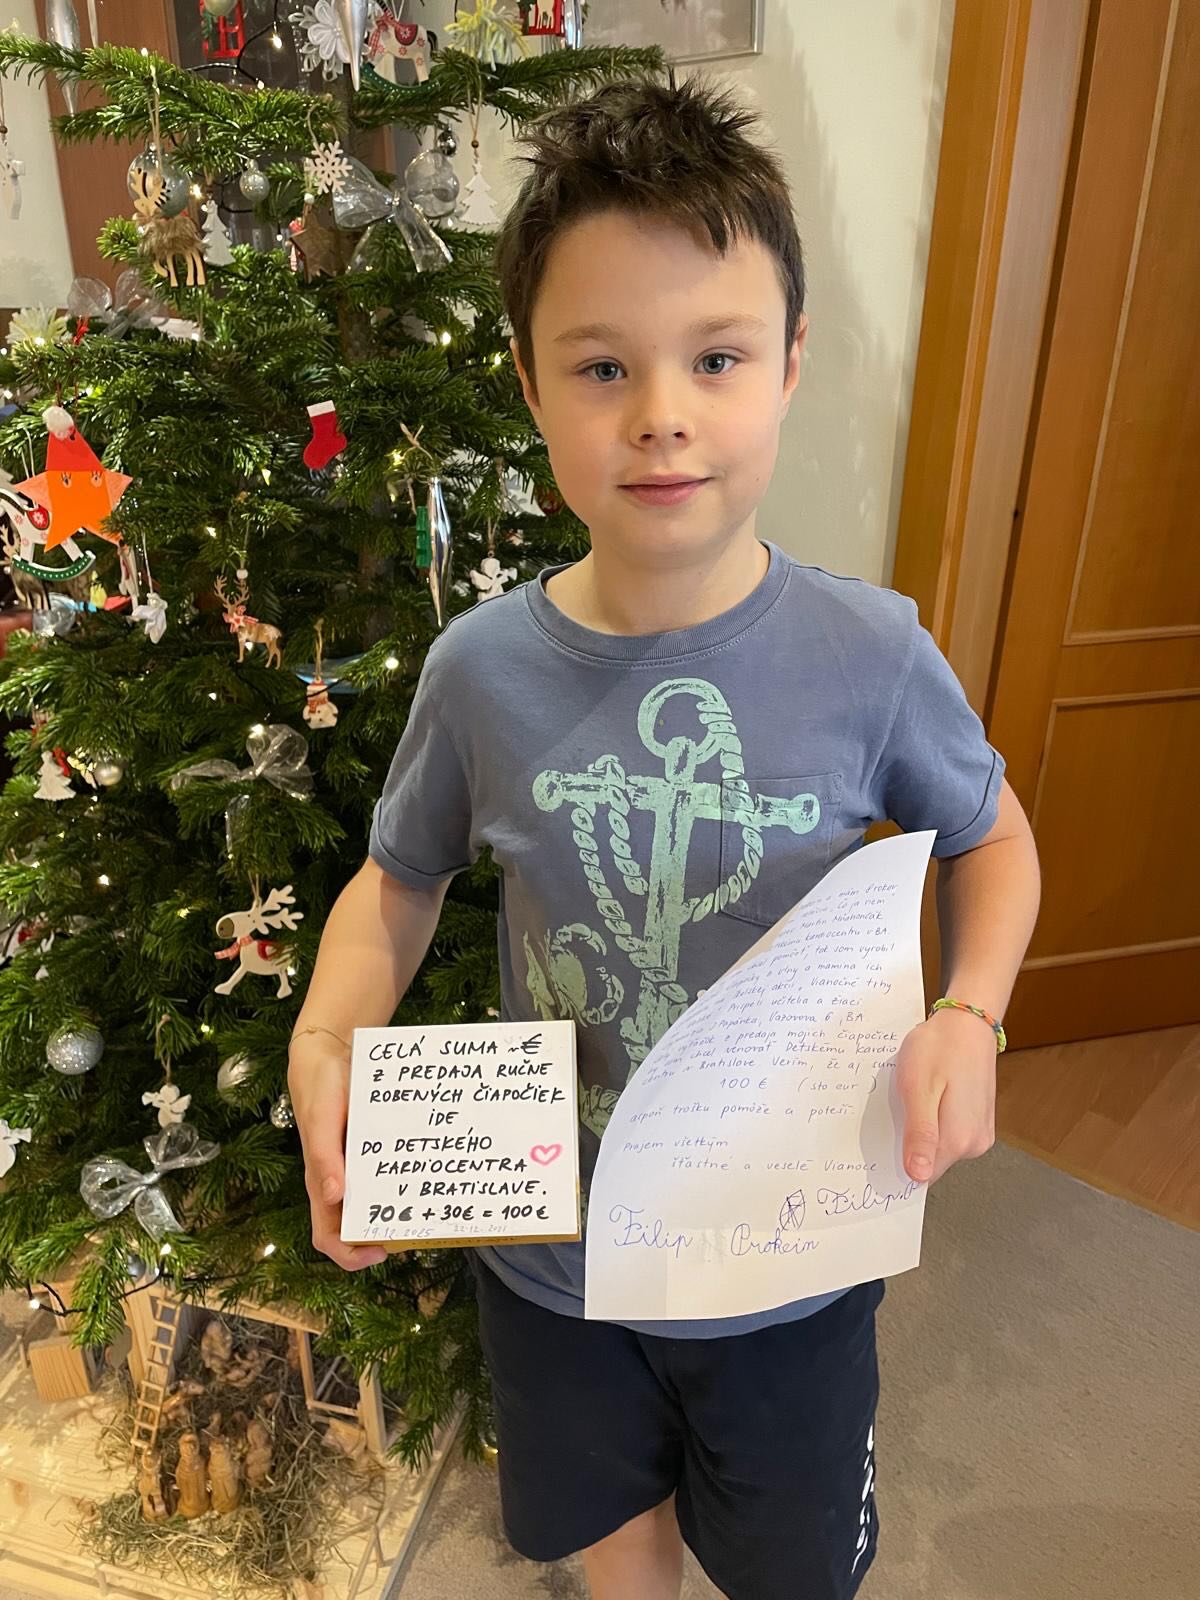 CELÁ SUMA ~€
Z PREDAJA RUČNE
ROBENÝCH ČIAPOČIEK
IDE
DO DETSKÉHO
KARDIOCENTRA
V BRATISLAVE.
70€ + 30€ = 100€
19.12.2025
a mám 8 rokov
čo ja viem
Martin
kardiocentru v BA.
chcel pomôcť, tak som vyrobil
čiapočky z vlny a mamina ich
akcii, Vianočné trhy
Prispeli učitelia a žiaci
Papánka, Vazovova 6, BA
z predaja mojich čiapočiek
by som chcel venovať Detskému kardio
centru v Bratislave. Verím, že aj suma
100 € (sto eur)
aspoň trošku pomôže a poteší.
Prajem všetkým
šťastné a veselé Vianoce.
Filip Prokein Filip.P